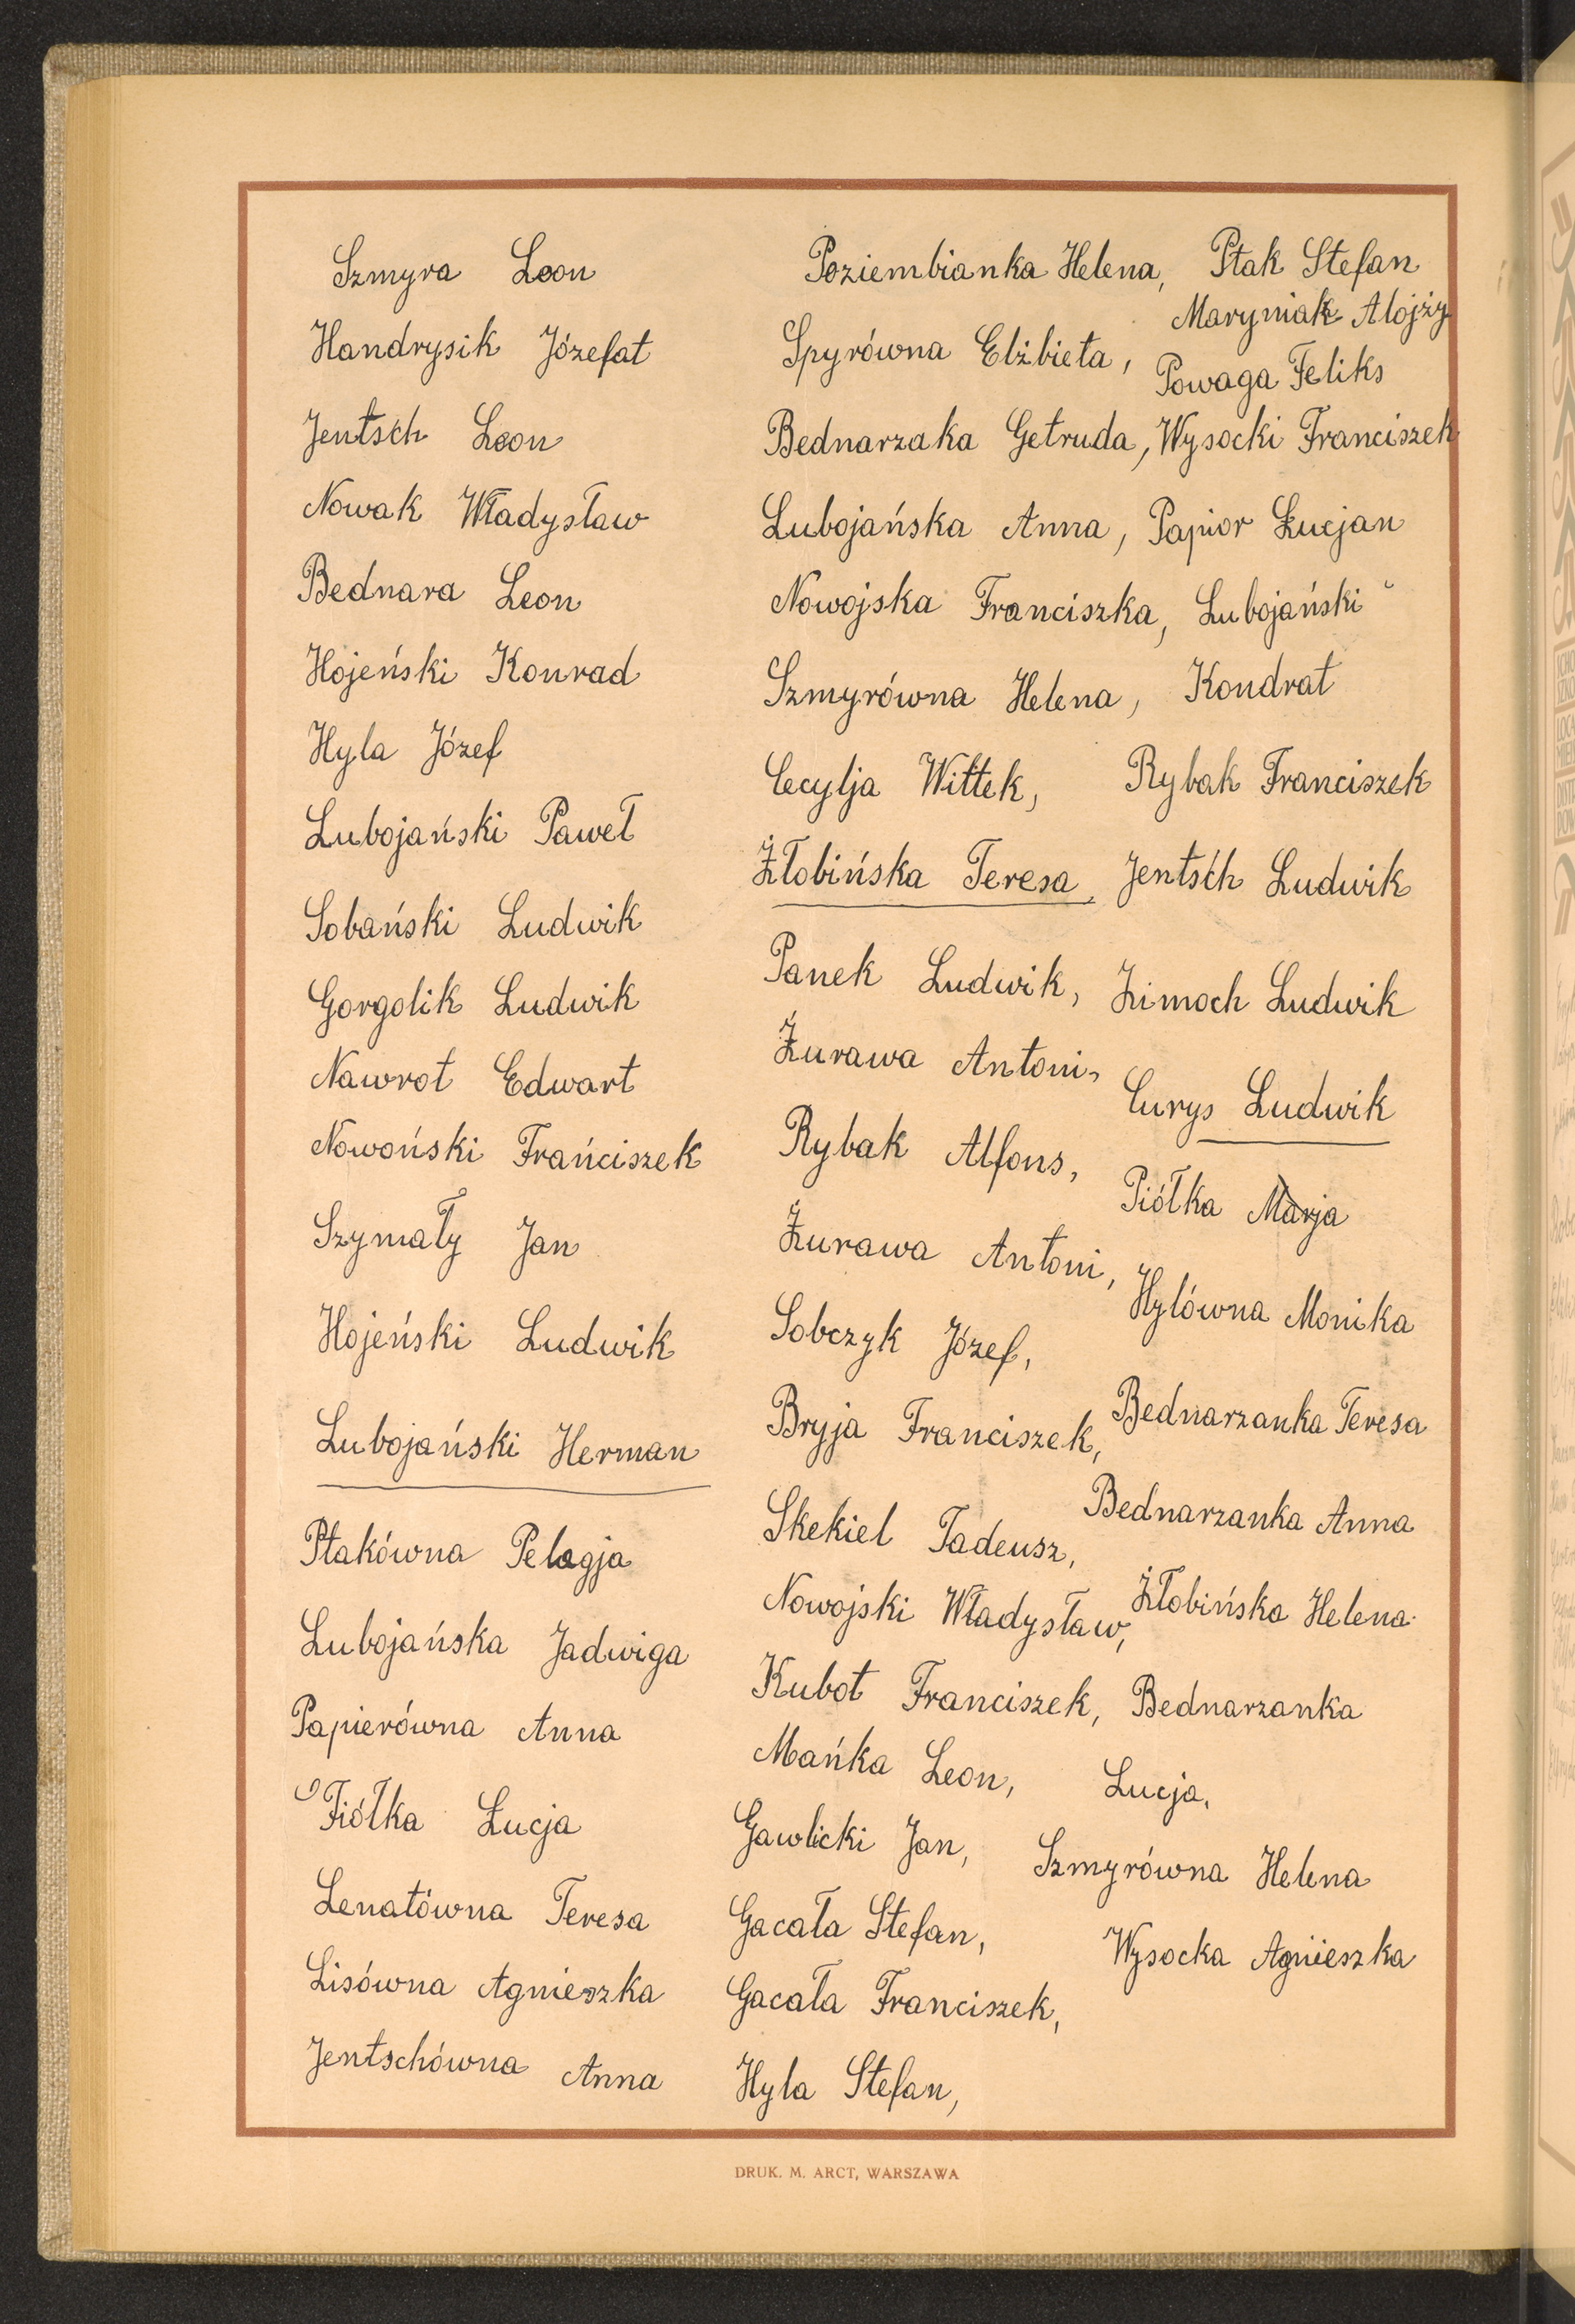 Szmyra Leon
Handrysik Józefat
Jentsch Leon
Nowak Władysław
Bednara Leon
Hojeński Konrad
Hyla Józef
Lubojański Paweł
Sobański Ludwik
Gorgolik Ludwik
Nawrot Edwart
Nowoński Frańciszek
Szymały Jan
Hojeński Ludwik
Lubojański Herman
Ptakówna Pelagja
Lubojańska Jadwiga
Papierówna Anna
Fiółka Łucja
Lenatówna Teresa
Lisówna Agnieszka
Jentschówna Anna
Poziembianka Helena,
Spyrówna Elżbieta,
Bednarzaka Getruda,
Lubojańska Anna,
Nowojska Franciszka,
Szmyrówna Helena,
Cecylja Wittek,
Żłobińska Teresa,
Panek Ludwik,
Żurawa Antoni,
Rybak Alfons,
Żurawa Antoni,
Sobczyk Józef,
Bryja Franciszek,
Skekiel Tadeusz,
Nowojski Władysław,
Kubot Franciszek,
Mańka Leon,
Gawlicki Jan,
Gacała Stefan,
Gacała Franciszek,
Hyla Stefan,
Ptak Stefan
Maryniak Alojży
Powaga Feliks
Wysocki Franciszek
Papior Łucjan
Lubojański
Kondrat
Rybak Franciszek
Jentsch Ludwik
Zimoch Ludwik
Curys Ludwik
Piółka Marja
Hylówna Monika
Bednarzanka Teresa
Bednarzanka Anna
Żłobińska Helena
Bednarzanka
Lucja,
Szmyrówna Helena
Wysocka Agnieszka
DRUK. M. ARCT, WARSZAWA